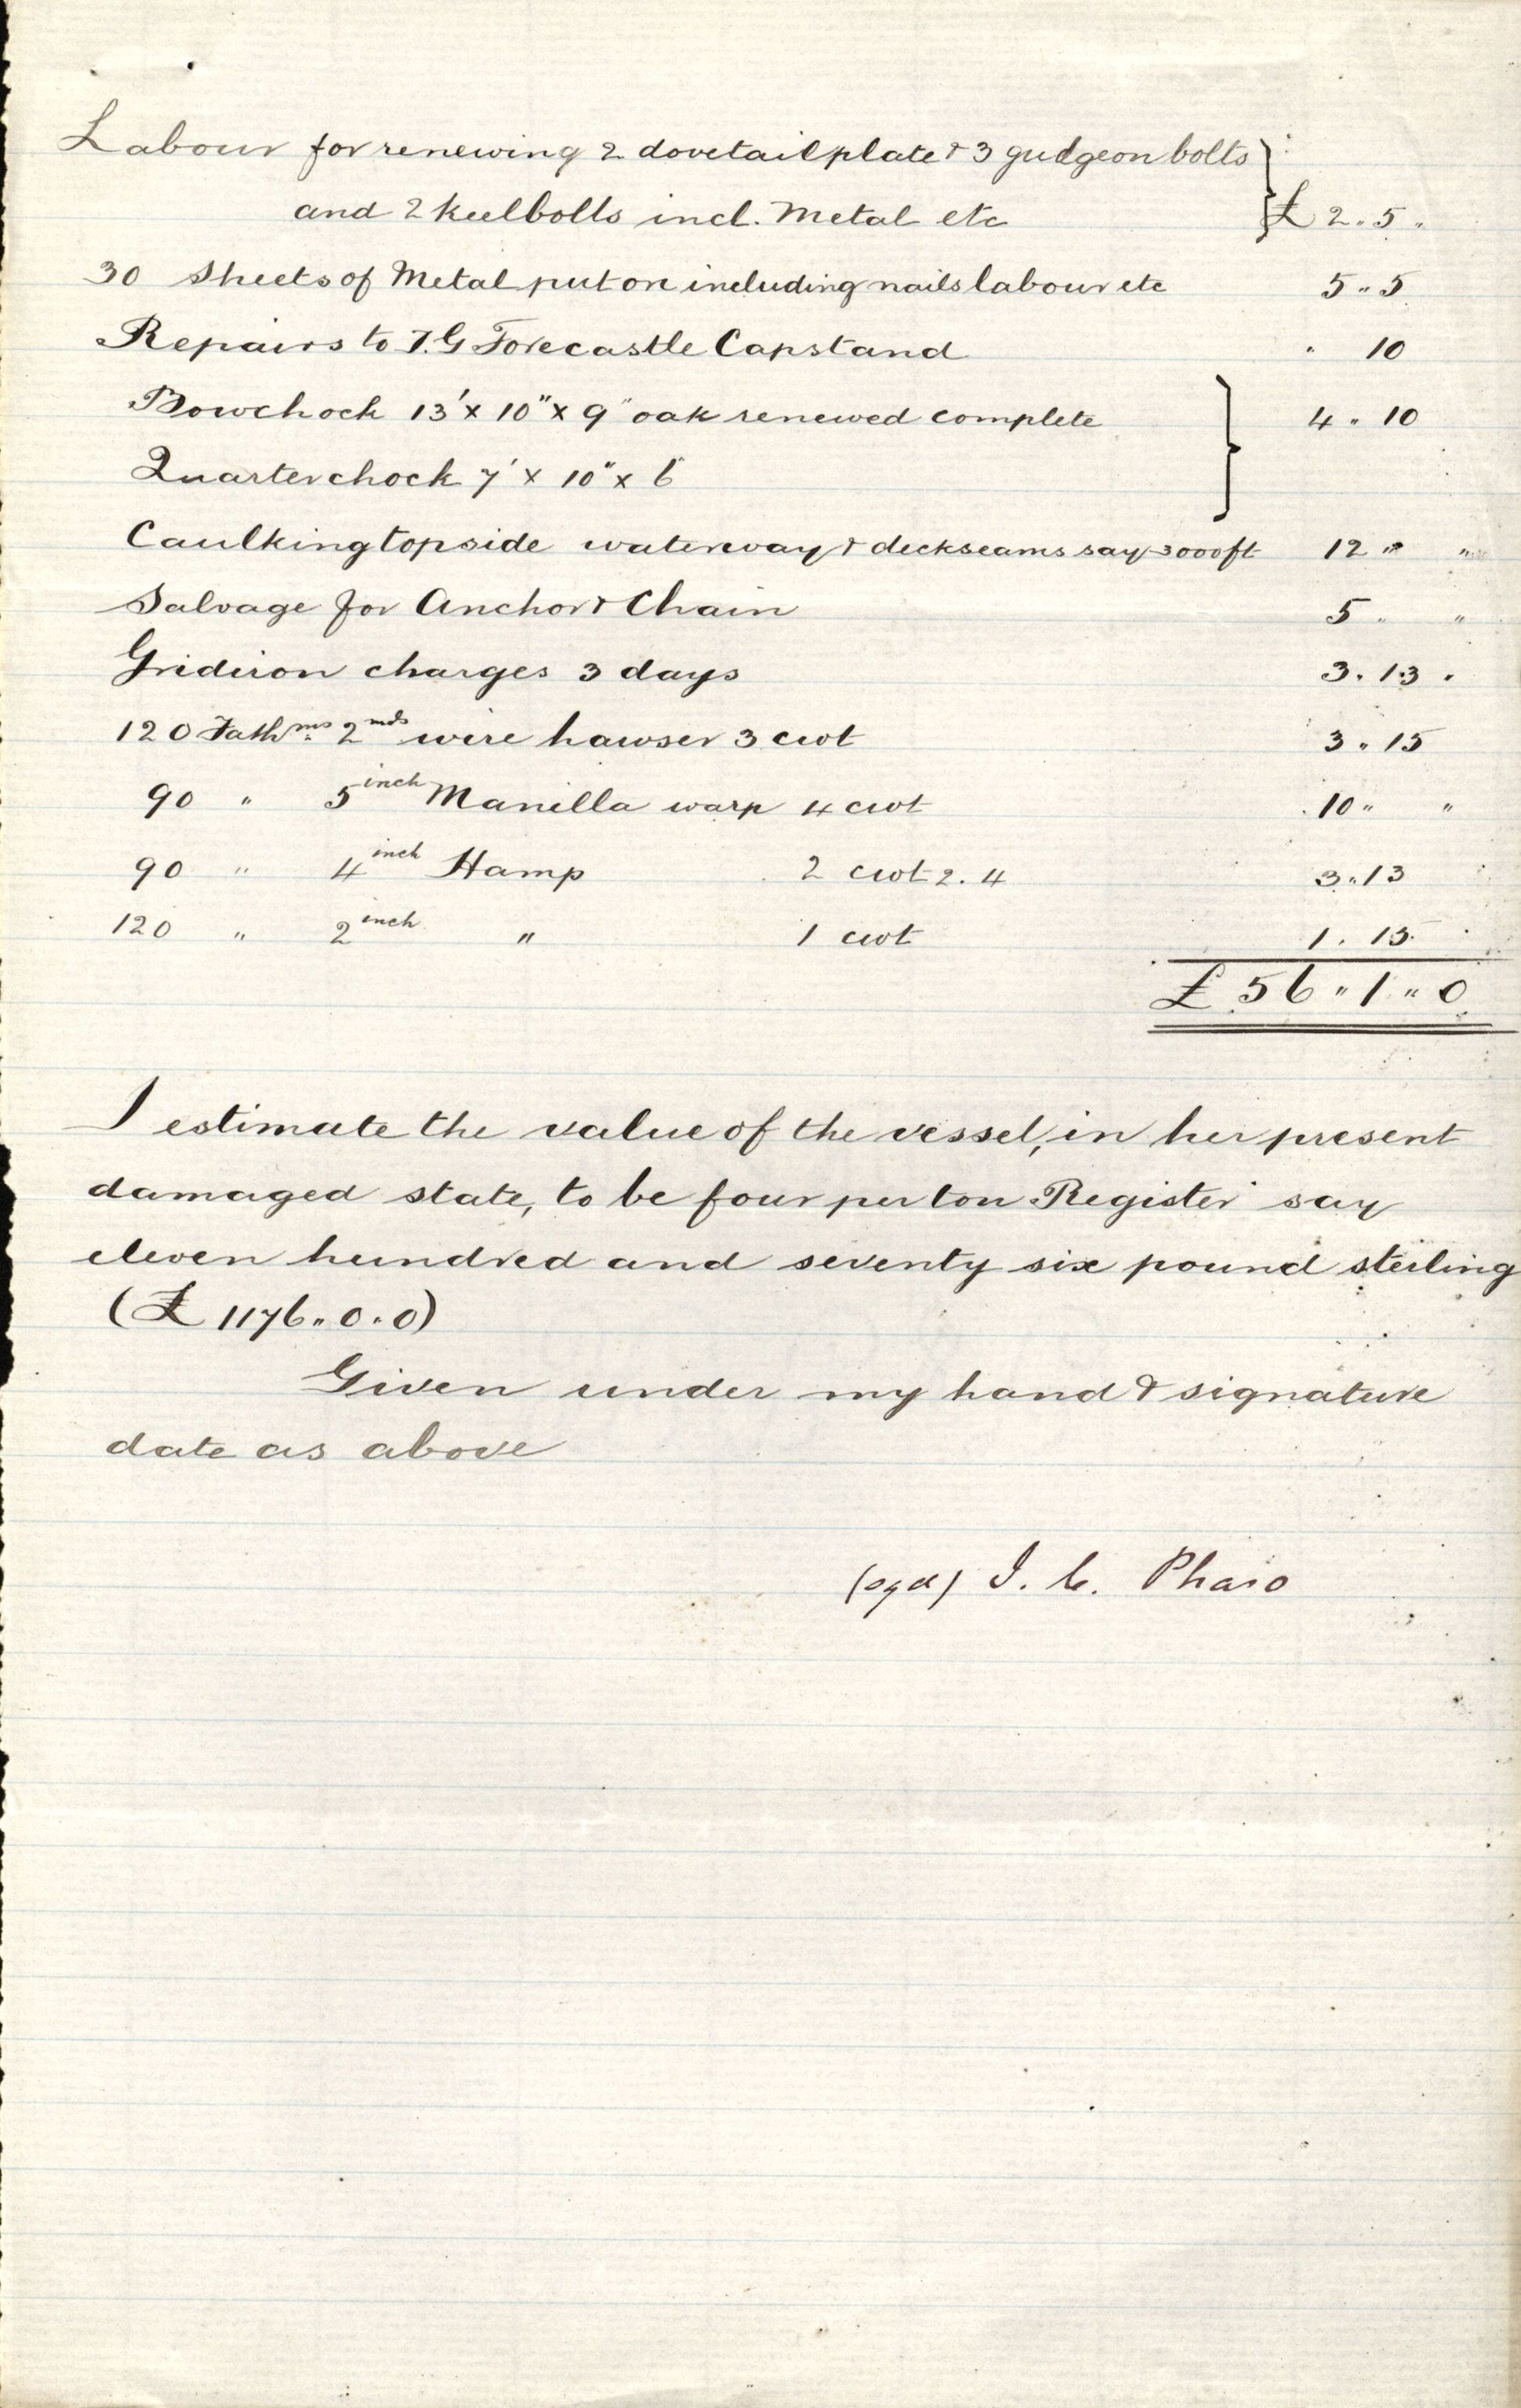 Labour for renewing 2 dovetail plate & 3 gudgeon bolts
and 2 keelbolts incl. Metal etc £ 2 " 5 "
30 Sheets of Metal put on including nails labour etc 5 " 5
Repairs to T.G Forecastle Capstand " 10
Bowchock 13' x 10" x 9" oak renewed complete 4 " 10
Quarterchock 7' x 10" x 6"
Caulking topside waterway & deckseams say 3000 ft 12 " "
Salvage for Anchor & Chain 5 " "
Gridiron charges 3 days 3 . 13 .
120 Fathms 2 wire hawser 3 cwt 3 " 15
90 " 5 inch Manilla warp 4 cwt 10 " "
90 " 4 inch Hamp 2 cwt 2. 4 3 " 13
120 " 2 inch " 1 cwt 1 . 15
£ 56 " 1 " 0
I estimate the value of the vessel, in her present
damaged state, to be four per ton Register say
eleven hundred and seventy six pound sterling
(£ 1176 " 0 " 0)
Given under my hand & signature
date as above
(sgd) J. C. Pharo